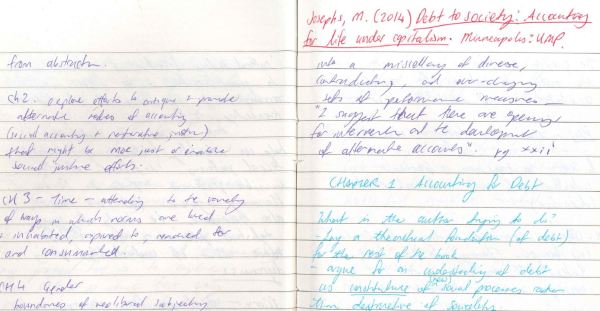 from abstraction.
Ch2. explore efforts to critique + provide
alternate modes of accounting
(social accounting + restorative justice)
that might be more just or enable
social justice efforts.
CH 3 - Time - attending to the variety
of ways in which norms are lived
+ inhabited, aspired to, reached for
and consummated.
CH 4 Gender
boundaries of neoliberal subjectivity
Josephs, M. (2014) Debt to society: Accounting
for life under capitalism. Minneapolis: UMP.
into a miscellany of diverse,
contradicting, and ever-changing
sets of performance measures -
"I suggest that there are openings
for intervention and the development
of alternative accounts". pg xxii
CHAPTER 1 Accounting for Debt
What is the author trying to do?
- Lay a theoretical foundation (of debt)
for the rest of the book
- argue for an understanding of debt
as constitutive of social processes rather
than destructive of sociality